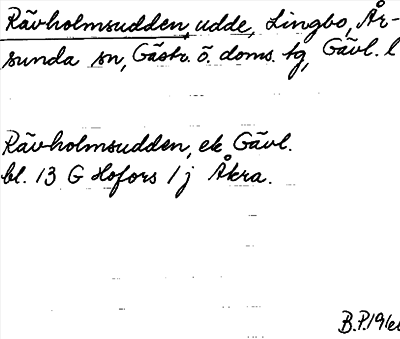 Rävholmsudden, udde, Lingbo, År-
sunda sn, Gästr. ö. doms. tg, Gävl. l
Rävholmsudden, ek Gävl.
bl. 13 G Hofors 1 j Åkra.
B.P.